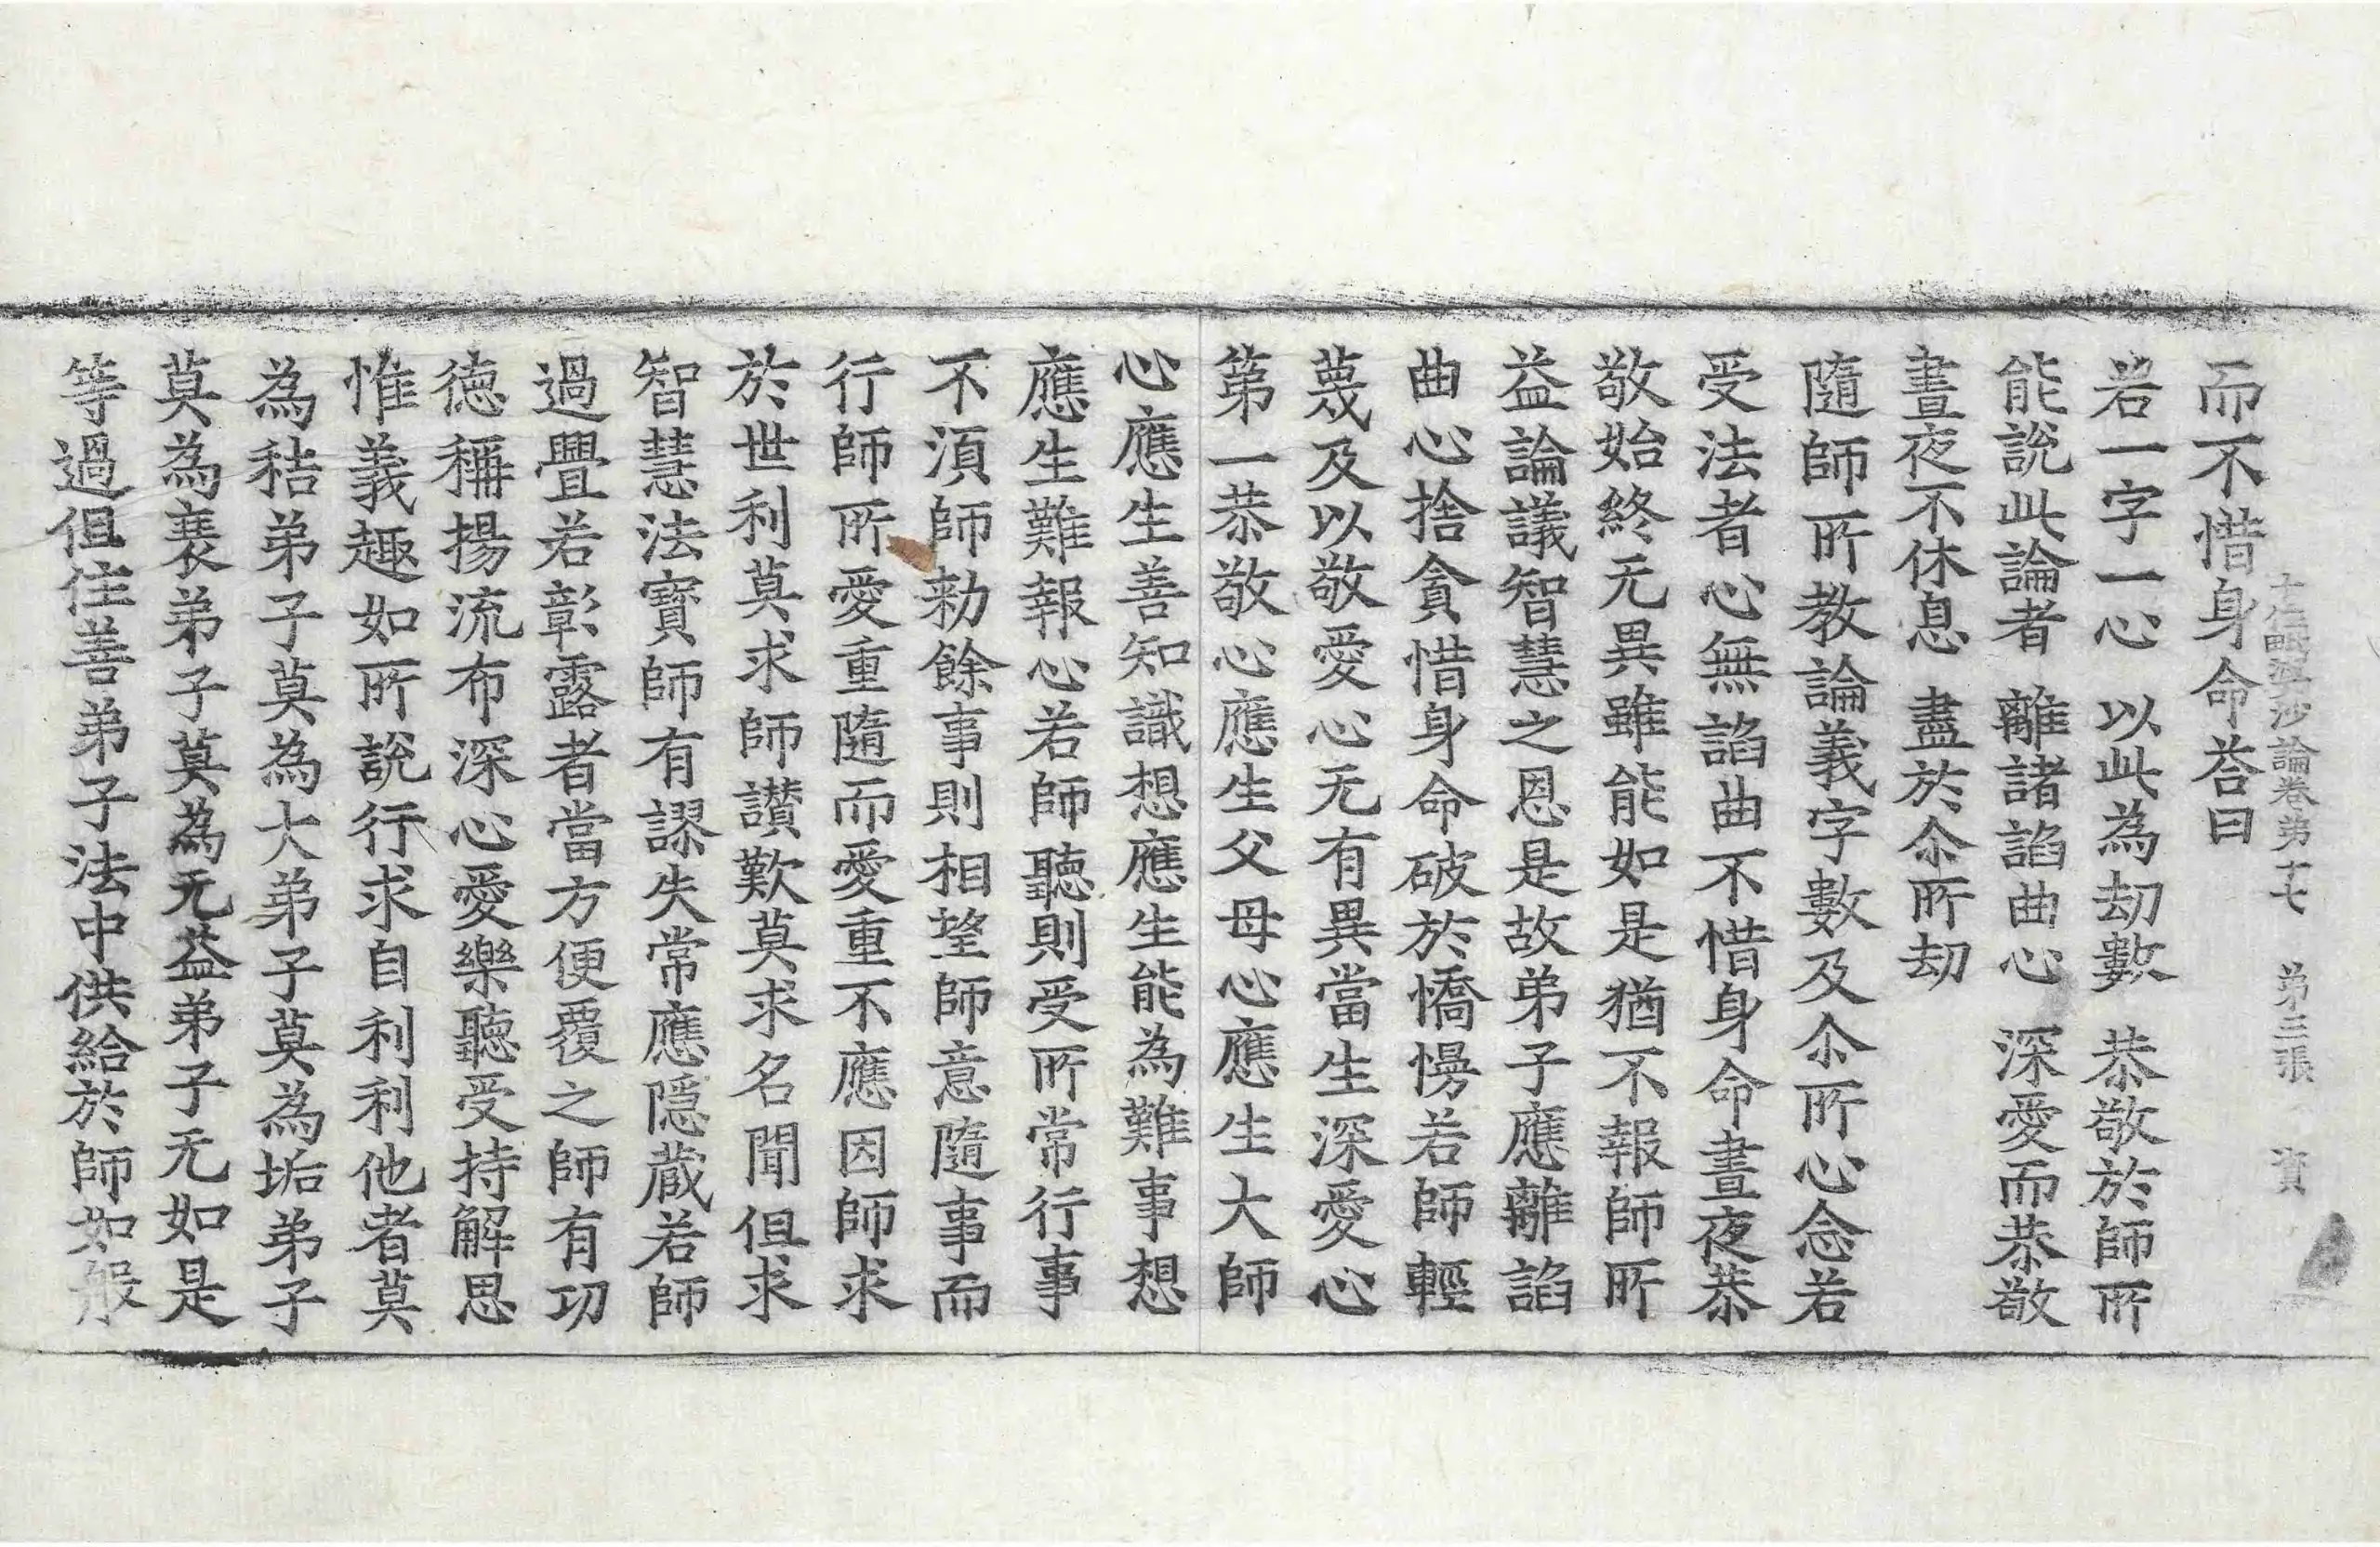 十住毗婆沙論卷第十七 第三張 資
而不惜身命荅曰
若一字一心 以此為劫數 恭敬於師所
能說此論者 離諸諂曲心 深愛而恭敬
晝夜不休息 盡於尒所劫
隨師所教論義字數及尒所心念若
受法者心無諂曲不惜身命晝夜恭
敬始終无異雖能如是猶不報師所
益論議智慧之恩是故弟子應離諂
曲心捨貪惜身命破於憍慢若師輕
蔑及以敬愛心无有異當生深愛心
第一恭敬心應生父母心應生大師
心應生善知識想應生能為難事想
應生難報心若師聽則受所常行事
不湏師勑餘事則相望師意隨事而
行師所愛重隨而愛重不應因師求
於世利莫求師讃歎莫求名聞但求
智慧法寶師有謬失常應隱蔵若師
過舋若彰露者當方便覆之師有功
德稱揚流布深心愛樂聽受持解思
惟義趣如所說行求自利利他者莫
為秸弟子莫為大弟子莫為垢弟子
莫為衰弟子莫為无益弟子无如是
等過但住善弟子法中供給於師如般